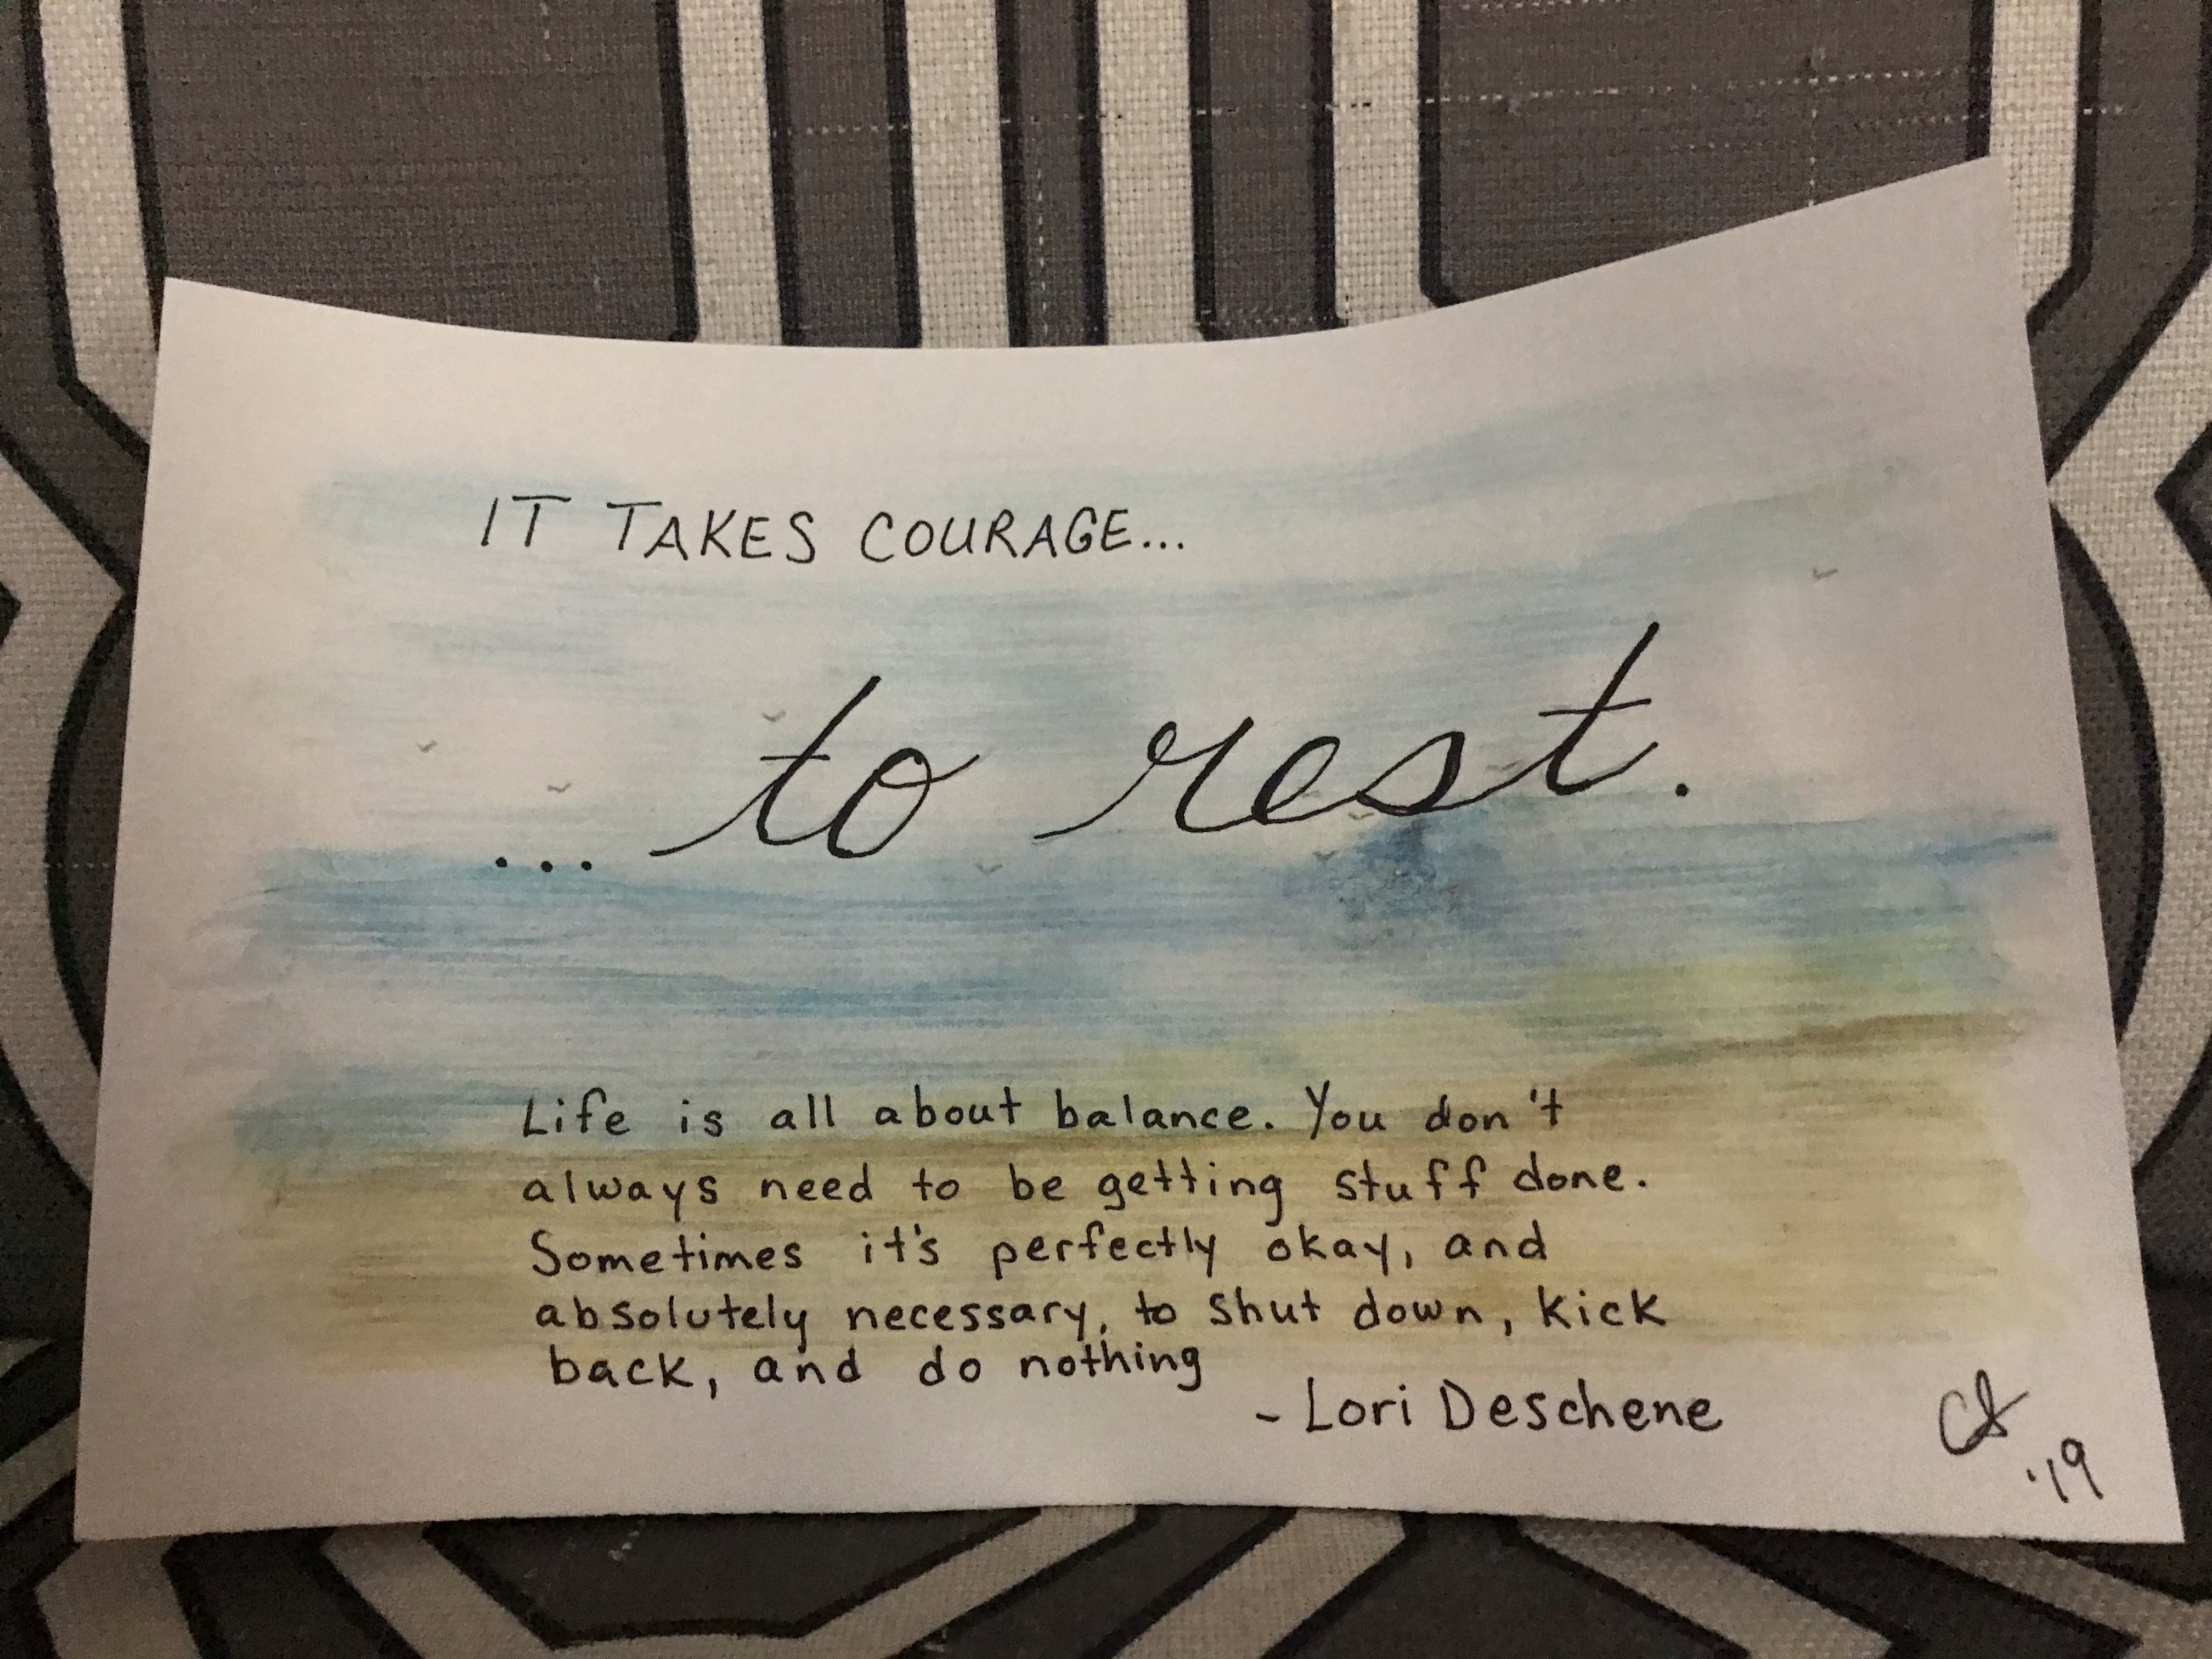 IT TAKES COURAGE...
... to rest.
Life is all about balance. You don't
always need to be getting stuff done.
Sometimes it's perfectly okay, and
absolutely necessary, to shut down, kick
back, and do nothing
- Lori Deschene
'19